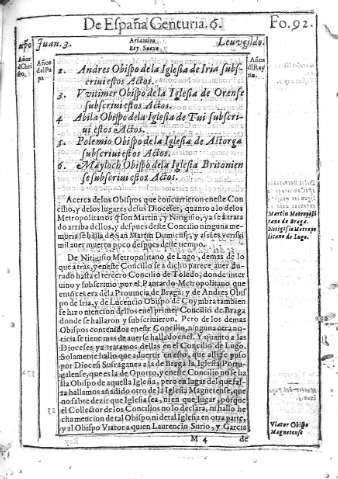 De España Centuria. 6. Fo. 92.
Juan. 3. Ariamiro Rey Suevo Leuvegildo.
2. Andres Obispo de la Iglesia de Iria subs-
crivi estos Actos.
3. Vvitimer Obispo de la Iglesia de Orense
subscrivi estos Actos.
4 Abila Obispo de la Iglesia de Tui subscri-
vi estos Actos.
5. Polemio Obispo de la Iglesia de Astorga
subscrivi estos Actos.
6. Mayloch Obispo de la Iglesia Britonien
se subscrivi estos Actos.
Acerca de los Obispos que concurrieron en este Con
cilio, y de los lugares de sus Diocesis, quanto a lo de los
Metropolitanos San Martin, y Nitigisio, ya se a trata
do arriba dellos, y despues deste Concilio ninguna me-
moria se halla de San Martin Dumiense, y assi es verisi
mil aver muerto poco despues deste tiempo.
De Nitigisio Metropolitano de Lugo, demas de lo
que atras, y en este Concilio se a dicho parece aver du-
rado hasta el tercero Concilio de Toledo, donde inter
vino y subscrivio por el Pantardo Metropolitano que
entonces era de la Provincia de Braga: y de Andres Obis
po de Iria, y de Lucencio Obispo de Coymbra tambien
se hizo mencion dellos en el primer Concilio de Braga
donde se hallaron y subscrivieron. Pero de los demas
Obispos contenidos en este Concilio, ninguna otra no-
ticia se tiene mas de aver se hallado en el. Y quanto a las
Diocesis ya tratamos dellas en el Concilio de Lugo.
Solamente hallo que advertir en esto, que alli se puso
por Diocesi Sufraganea a la de Braga la Iglesia Portu-
galense, que es la de Oporto, y en este Concilio no se ha
lla Obispo de aquella Iglesia, pero en lugar del que fal
ta hallamos añadido otro de la Iglesia Magnetense, que
no sabe dezir que Iglesia sea, ni en que lugar, porque
el Collector de los Concilios no lo declara, ni hallo he
cha mencion de tal Obispo ni de tal Iglesia en otra parte,
y al Obispo Viator a quien Laurencio Surio, y Garcia
M 4 de
Martin Metropoli
tano de Braga.
Nitigisio Metropo
litano de Lugo.
Viator Obispo
Magnetense